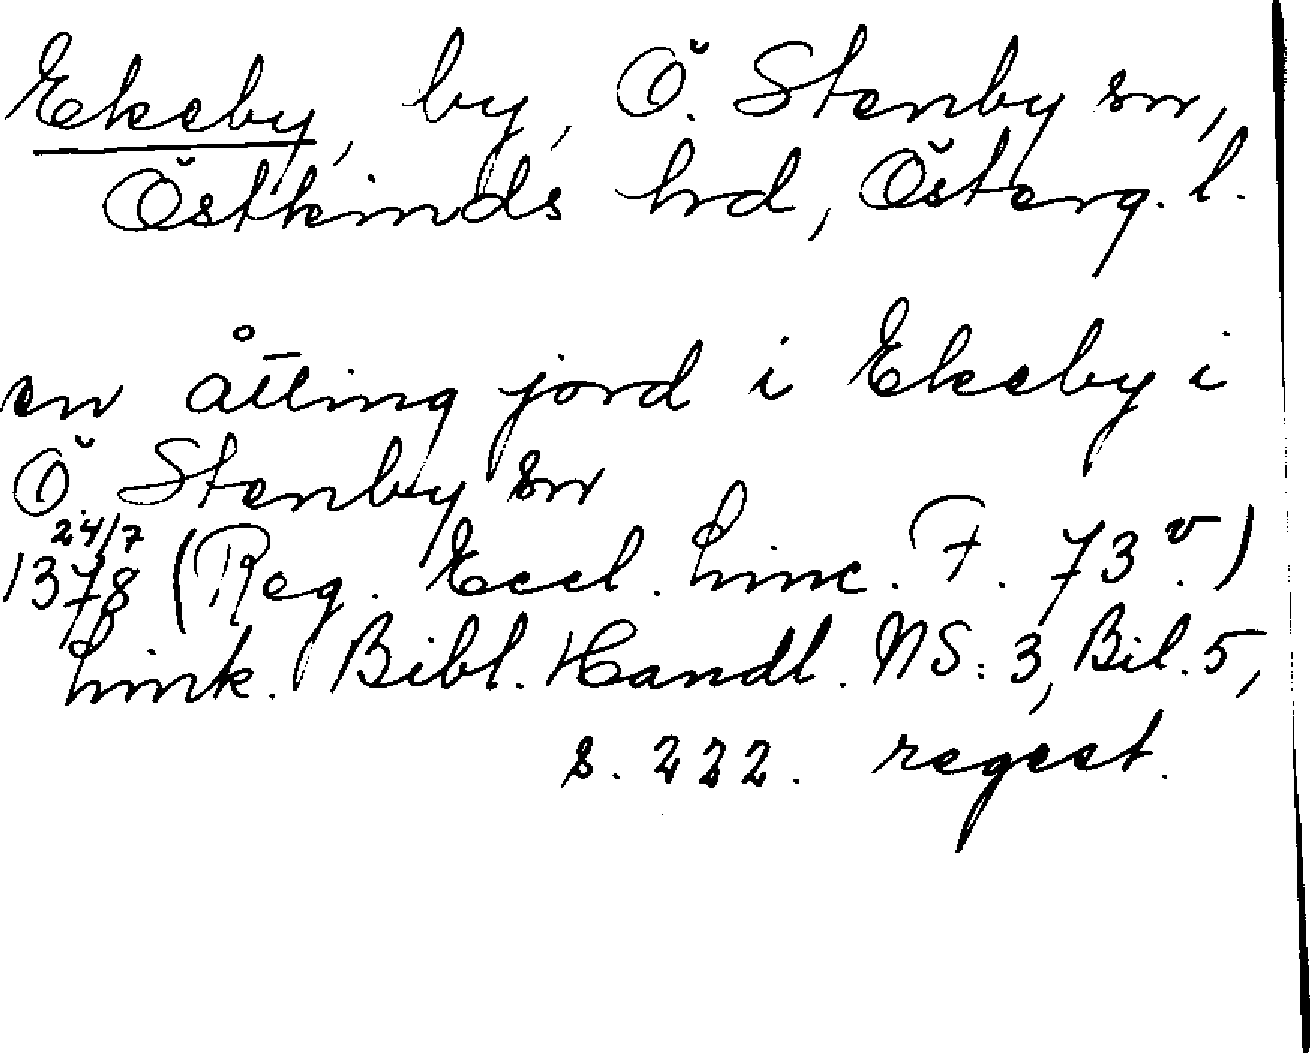 Ekeby, by, Ö. Stenby sn,
Östkinds hd, Österg. l.
en åtting jord i Ekeby i
Ö. Stenby sn
24/7
1378 (Reg. Eccl. Linc. F. 73v.)
Link. Bibl. Handl. NS: 3, Bil. 5,
s. 222. regest.